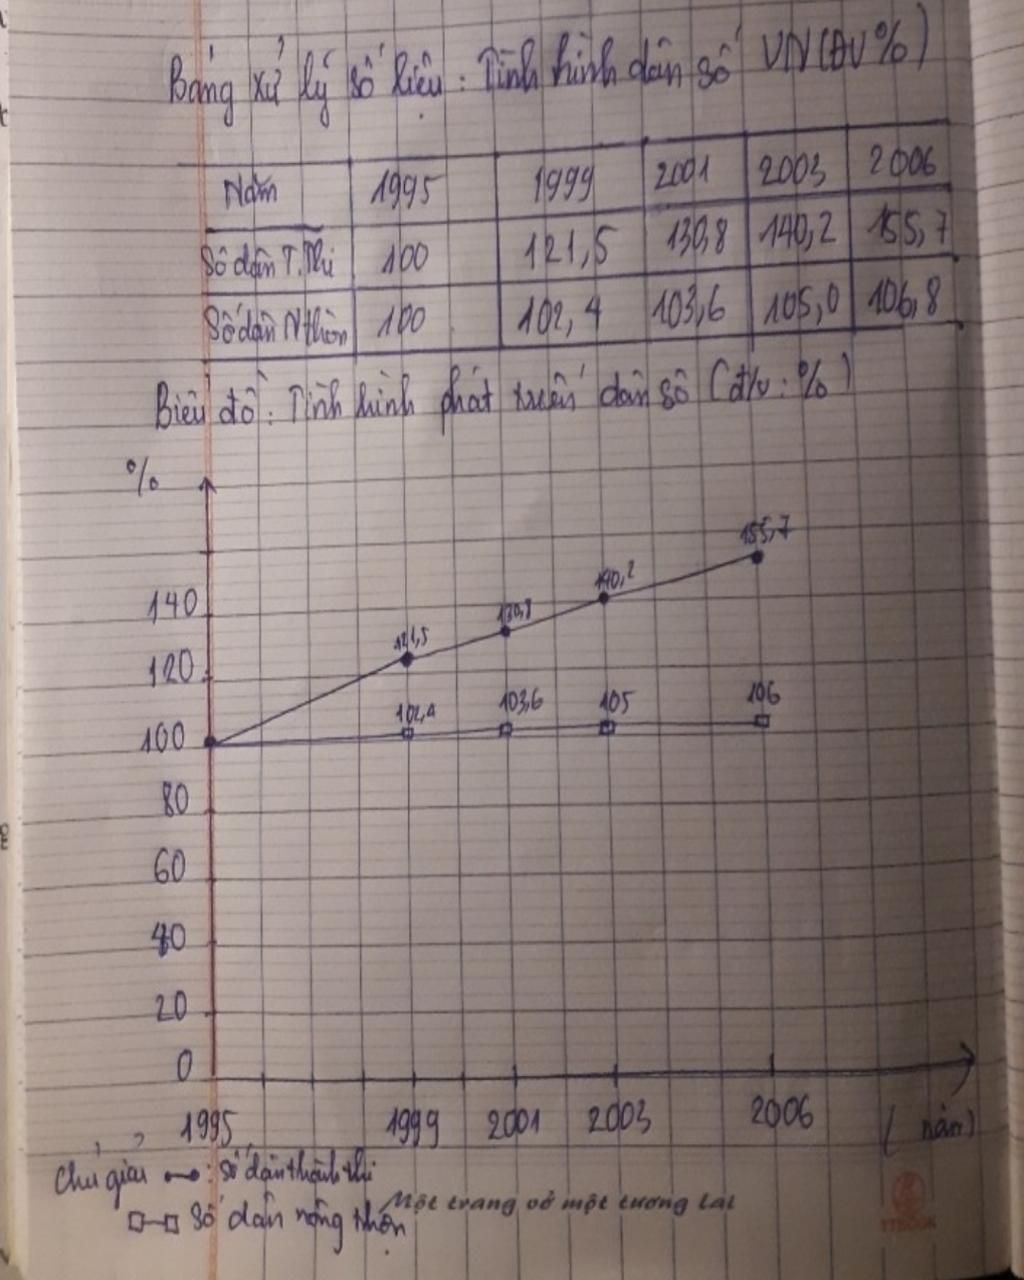 Bảng xử lý số liệu : Tình hình dân số VN (ĐV %)
Năm 1995 1999 2001 2003 2006
Số dân T.Thị 100 121,5 130,8 140,2 155,7
Số dân N thôn 100 102,4 103,6 105,0 106,8
Biểu đồ : Tình hình phát triển dân số (đ/v : %)
%
155,7
140,2
140
130,8
121,5
120
106
103,6 105
102,4
100
80
60
40
20
0
1995 1999 2001 2003 2006 (năm)
Chú giải : Số dân thành thị
Số dân nông thôn
Một trang vở một tương lai